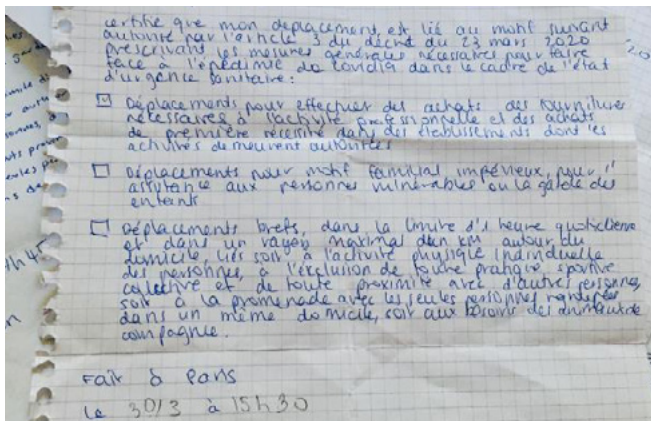 certifie que mon deplacement est lié au motif suivant
autorisé par l'article 3 du décret du 23 mars 2020
prescrivant les mesures générales nécessaires pour faire
face à l'épidémie de Covid19 dans le cadre de l'état
d'urgence sanitaire :
Déplacements pour effectuer des achats des fournitures
nécessaires à l'activité professionnelle et des achats
de première nécessité dans des établissements dont les
activités demeurent autorisées
Déplacements pour motif familial impérieux, pour l'
assistance aux personnes vulnérables ou la garde des
enfants
Déplacements brefs, dans la limite d'1 heure quotidienne
et dans un rayon maximal d'un km autour du
domicile, liés soit à l'activité physique individuelle
des personnes, à l'exclusion de toute pratique sportive
collective et de toute proximité avec d'autres personnes,
soit à la promenade avec les seules personnes
dans un même domicile, soit aux besoins des animaux de
compagnie.
Fait à Paris
le 30/3 à 15h30